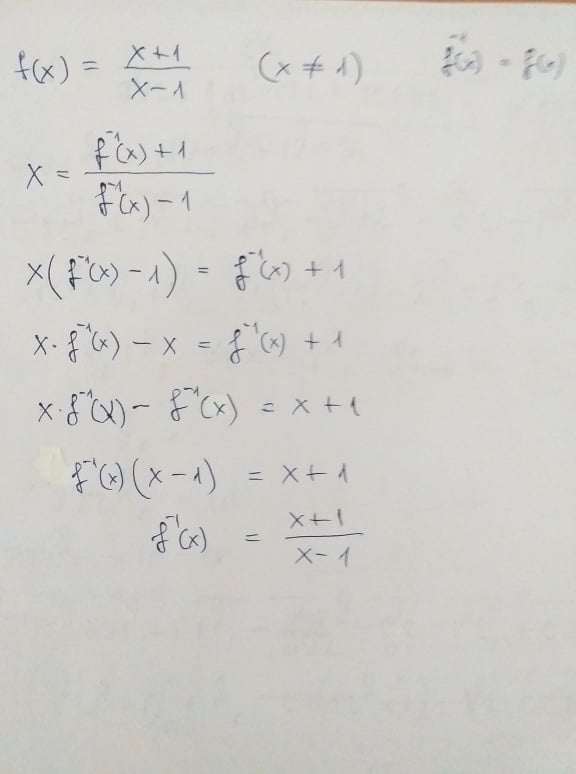 f(x) = \frac{x+1}{x-1} (x ≠ 1) f⁻¹(x) = f(x)
x = \frac{f⁻¹(x)+1}{f⁻¹(x)-1}
x(f⁻¹(x) - 1) = f⁻¹(x) + 1
x · f⁻¹(x) - x = f⁻¹(x) + 1
x · f⁻¹(x) - f⁻¹(x) = x + 1
f⁻¹(x)(x - 1) = x + 1
f⁻¹(x) = \frac{x+1}{x-1}